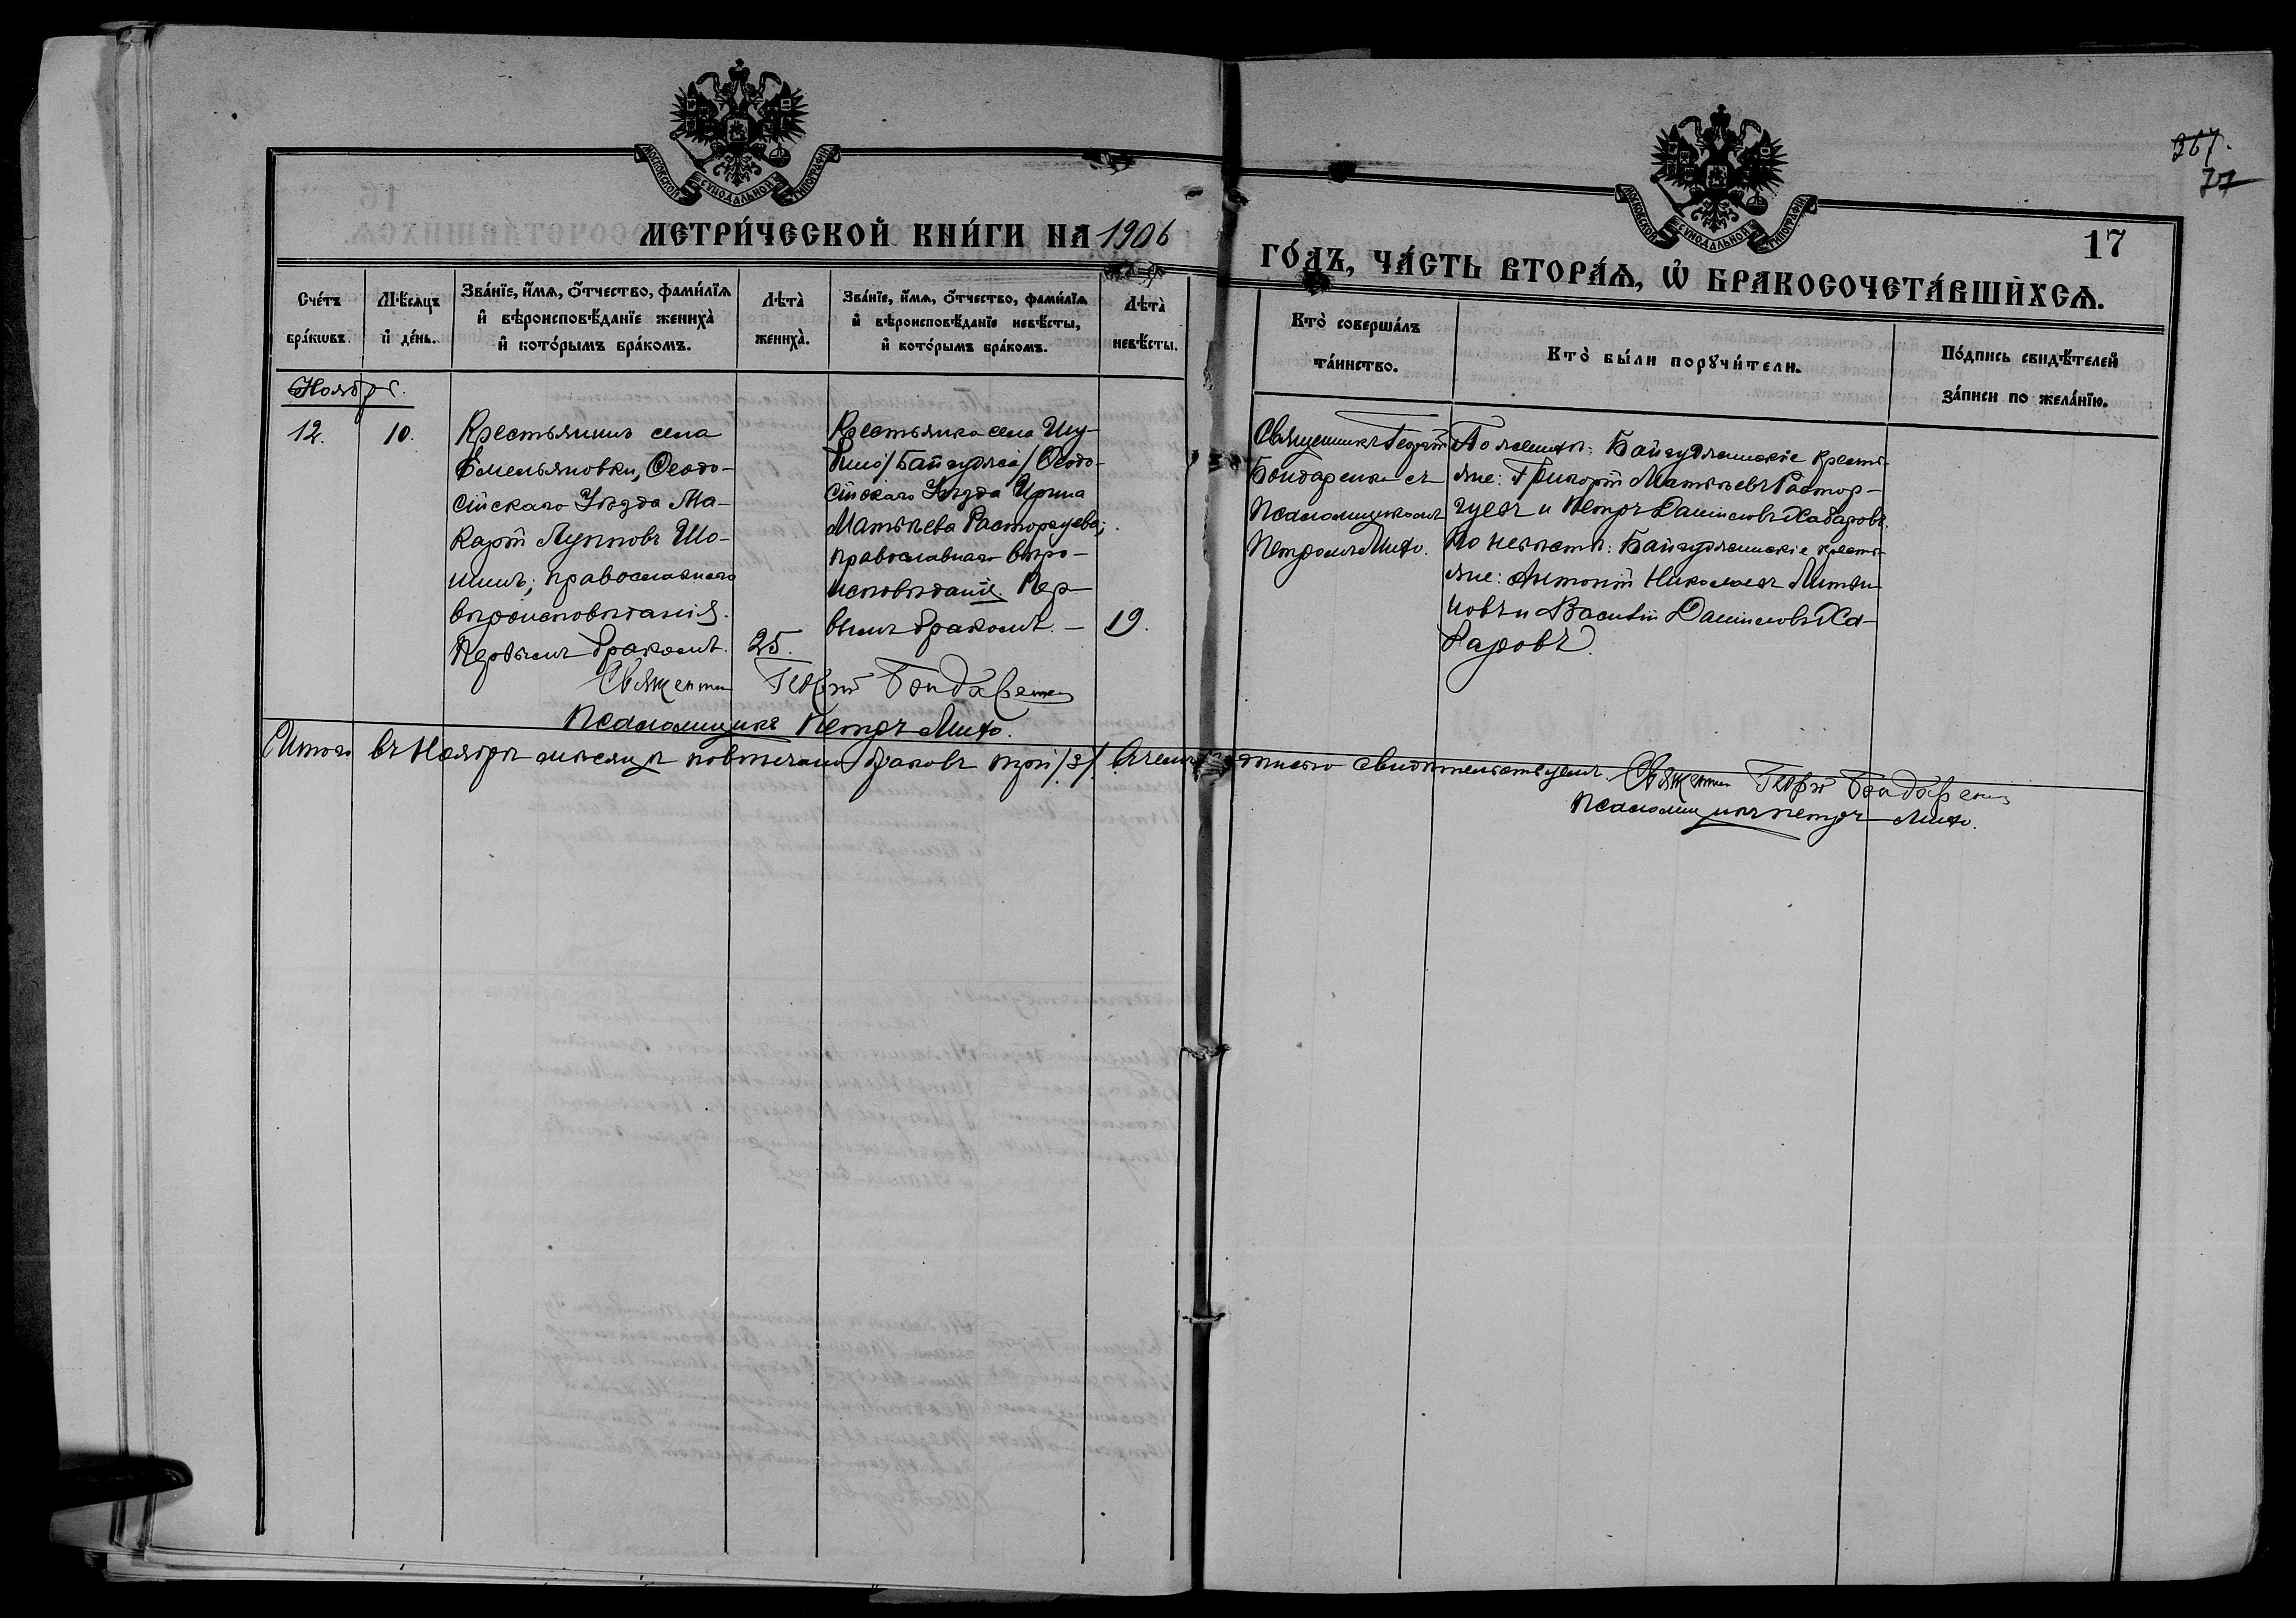 367.
77
17
МОСКОВСКОЙ СѴНОДАЛЬНОЙ ТИПОГРАФІИ
МОСКОВСКОЙ СѴНОДАЛЬНОЙ ТИПОГРАФІИ
МЕТРИ́ЧЕСКОЙ КНИ́ГИ НА 1906
ГО́ДЪ, ЧА́СТЬ ВТОРА́Я, Ѡ БРАКОСОЧЕТА́ВШИХСЯ.
Сче́тъ
бра́кѡвъ.
Мѣ́сяцъ
и де́нь.
Зва́нїе, и́мя, о́тчество, фами́лїя
и вѣроисповѣ́данїе жениха̀
и кото́рымъ бра́комъ.
Лѣта̀
жениха̀.
Зва́нїе, и́мя, о́тчество, фами́лїя
и вѣроисповѣ́данїе невѣ́сты,
и кото́рымъ бра́комъ.
Лѣта̀
невѣ́сты.
Кто̀ соверша́лъ
та́инство.
Кто̀ бы́ли порꙋчи́тели.
По́дпись свидѣ́телей
за́писи по жела́нїю.
Ноябрь.
12.
10.
Крестьянинъ села
Емельяновки, Ѳеодо-
сійскаго Уѣзда Ма-
карій Лупповъ Шо-
шинъ; православнаго
вѣроисповѣданія.
Первымъ бракомъ.
25.
Крестьянка села Шу-
бино /Байгуджа/ Ѳеодо-
сійскаго Уѣзда Ирина
Матвѣева Расторгуева;
православнаго вѣро-
исповѣданіе. Пер-
вымъ бракомъ. —
19.
Священникъ Георгій
Бондаренко съ
Псаломщикомъ
Петромъ Михо.
По женихѣ: Байгуджинскіе кресть-
яне: Григорій Матвѣевъ Растор-
гуевъ и Петръ Даниловъ Хабаровъ.
По невѣстѣ: Байгуджинскіе кресть-
яне: Антоній Николаевъ Литви-
новъ и Василій Даниловъ Ха-
баровъ.
Священникъ Георгій Бондаренко
Псаломщикъ Петръ Михо.
Итого въ Ноябрѣ мѣсяцѣ повѣнчано браковъ три /3/. Въ чемъ подписью свидѣтельствуемъ. Священникъ Георгій Бондаренко
Псаломщикъ Петръ Михо.